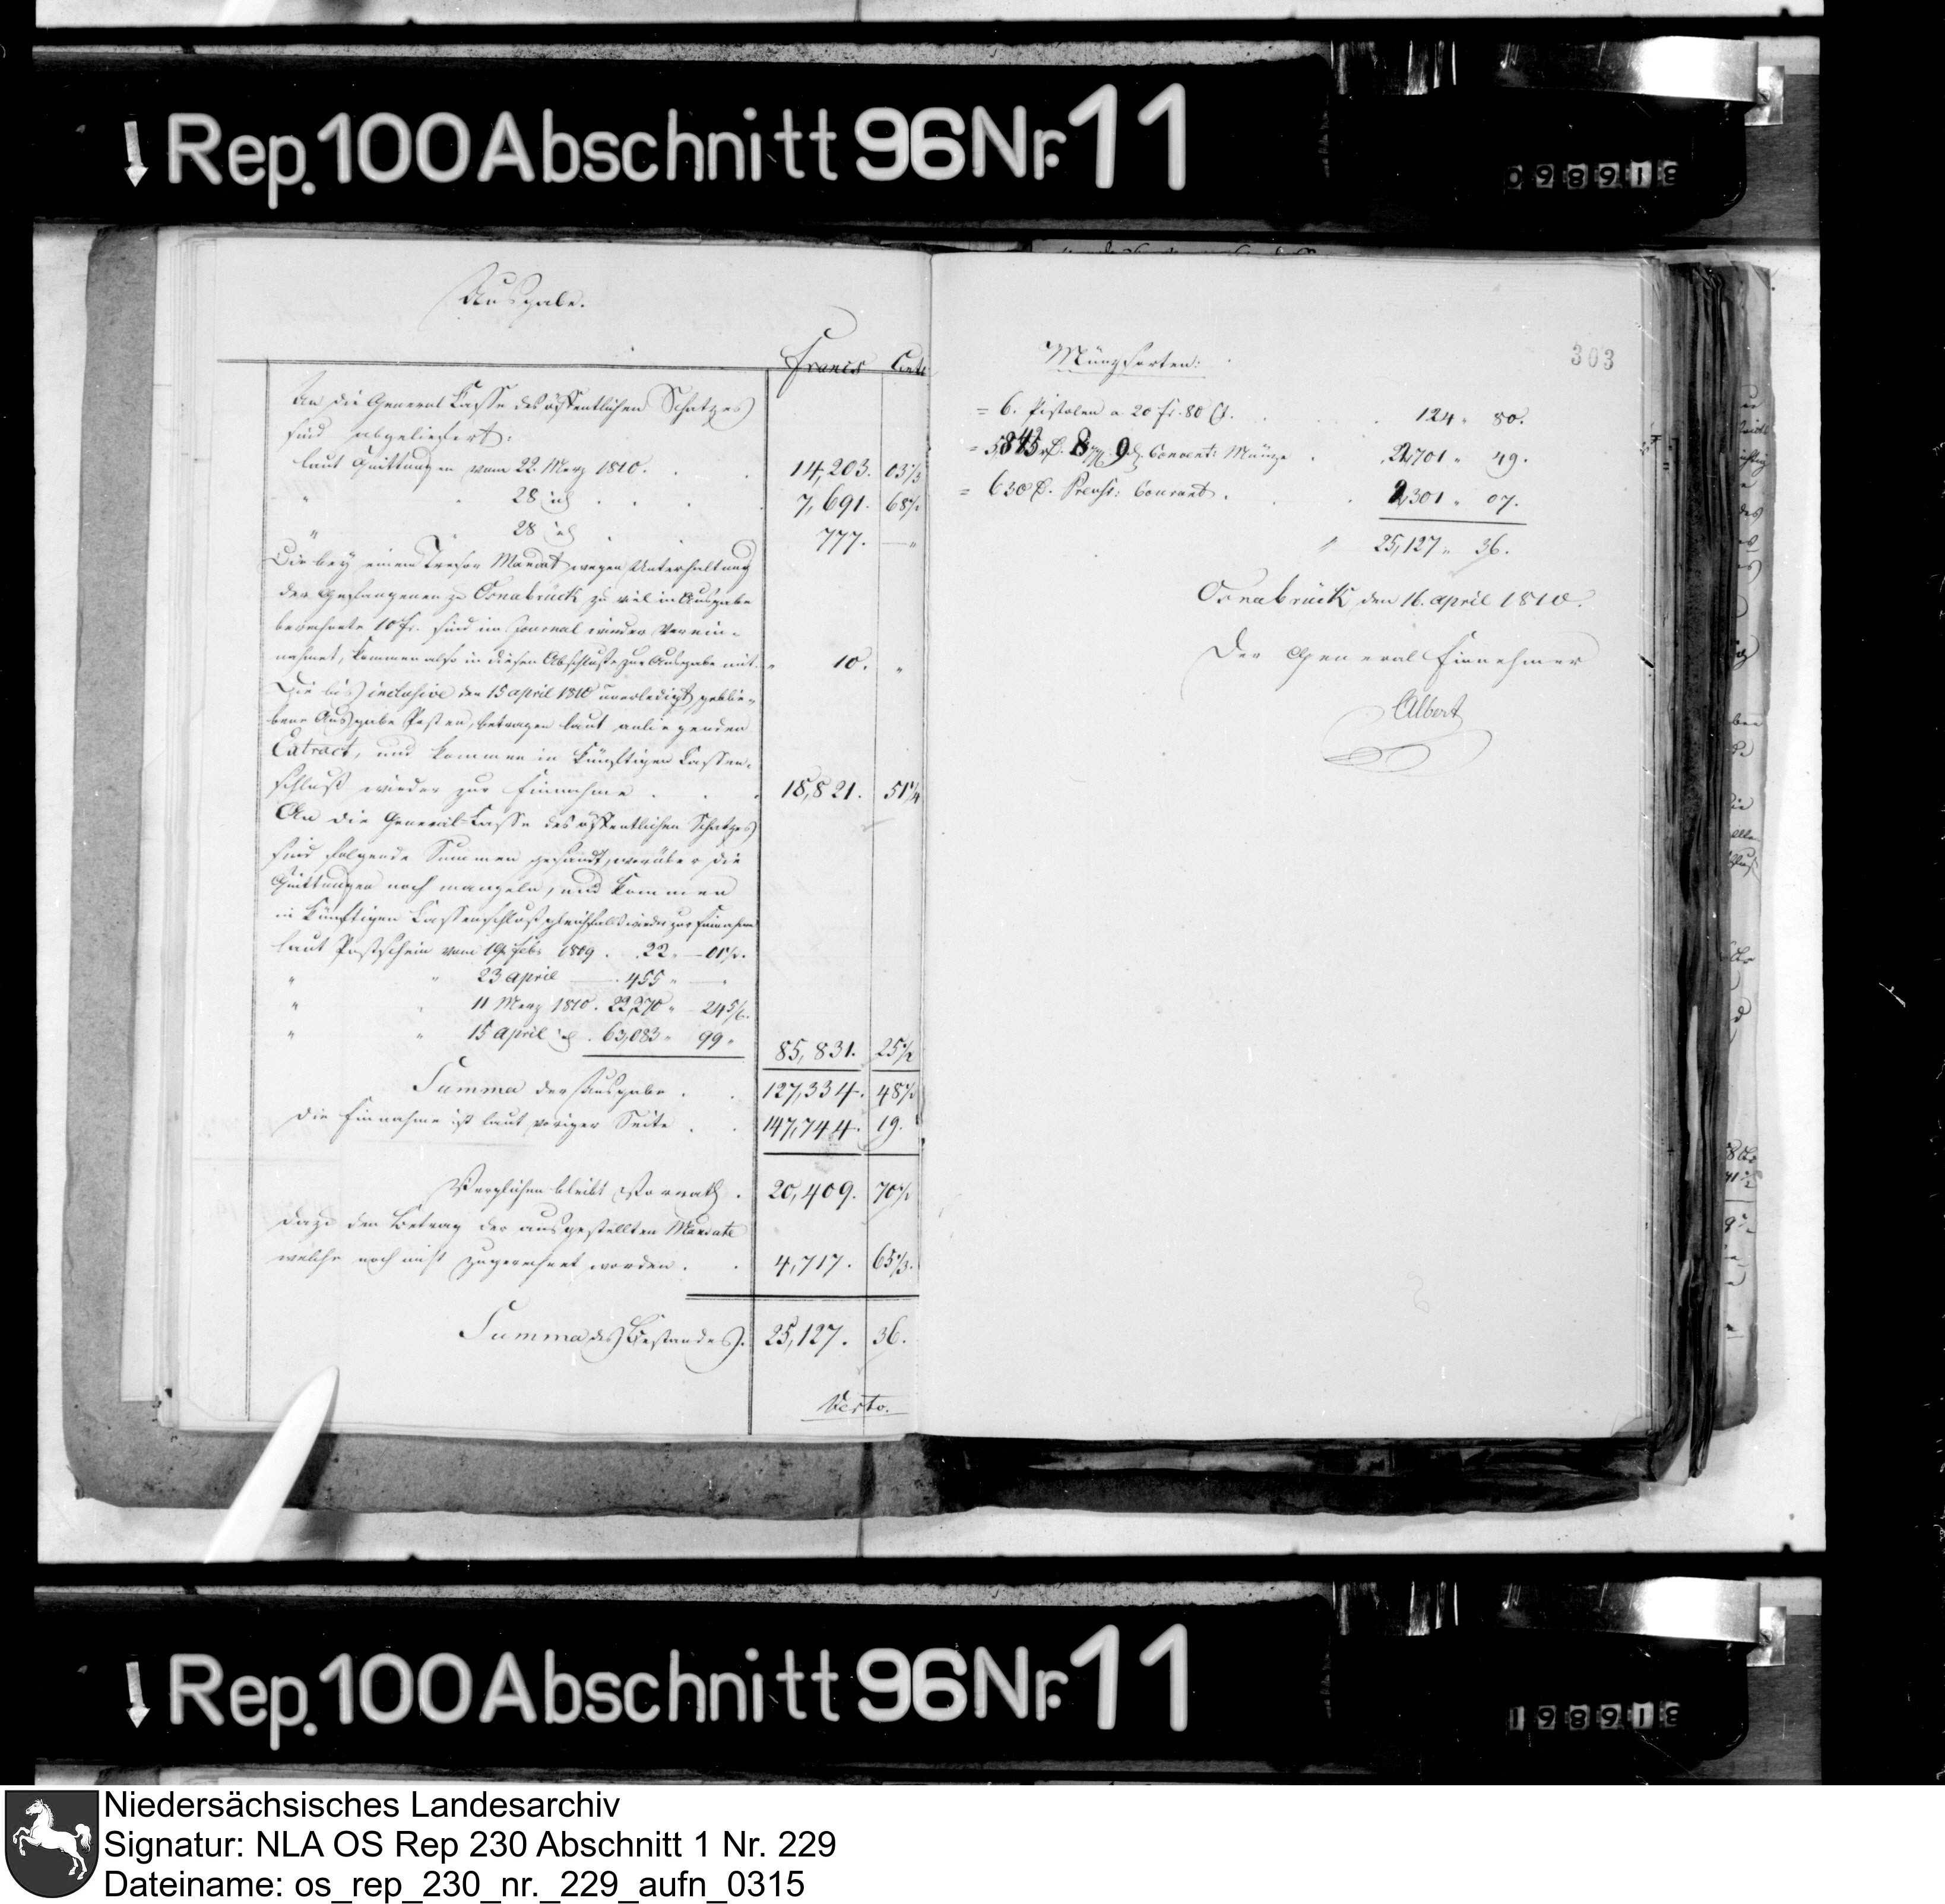 Rep. 100 Abschnitt 96 Nr. 11
098913
Ausgabe.
Francs Cent:
An die General Casse des öffentlichen Schatzes
sind abgeliefert:
laut Quittungen vom 22. Merz 1810. 14,203. 03 1/3
" 28 ej. 7,691. 68 1/2
" 28 ej. 777. — "
Die bey einem Tresor Mandat wegen Unterhaltung
der Gefangenen zu Osnabrück zu viel in Ausgabe
berechnete 10 fr. sind im Journal wieder verein-
nahmet, kommen also in diesen Abschlusse zur Ausgabe mit " 10. "
Die bis inclusive den 15 april 1810 unerledigt geblie-
bene Ausgabe Posten, betragen laut anliegenden
Extract, und kommen in künftigen Cassen-
schluß wieder zur Einnahme 18,821. 51 1/4
An die General-Casse des öffentlichen Schatzes
sind folgende Summen gesandt, worüber die
Quittungen noch mangeln, und kommen
in künftigen Cassenschluß gleichfals wieder zur Einnahme
laut Postschein vom 19 febr 1809. 22. — 01 1/2.
" " 23 april — 455 " —
" " 11 Merz 1810. 22,270 " 24 5/6.
" " 15 april ej. 63,083 " 99 "
85,831. 25 1/2
Summa der Ausgabe 127,334. 48 1/2
Die Einnahme ist laut voriger Seite 147,744. 19.
Verglichen bleibt Vorrath. 20,409. 70 1/2
Dazu den Betrag der ausgestellten Mandate
welche noch nicht zugerechnet worden. 4,717. 65 1/3.
Summa des Bestandes. 25,127. 36.
Verto.
303
Münzsorten:
= 6. Pistolen a 20 fr. 80 Ct. 124 " 80.
Convent: Münze 22,701 " 49.
= 630 Preuss: Courant. 2,301 " 07.
25,127 " 36.
Osnabrück den 16. april 1810.
Der General Einnehmer
Albert
Rep. 100 Abschnitt 96 Nr. 11
198913
Niedersächsisches Landesarchiv
Signatur: NLA OS Rep 230 Abschnitt 1 Nr. 229
Dateiname: os_rep_230_nr._229_aufn_0315